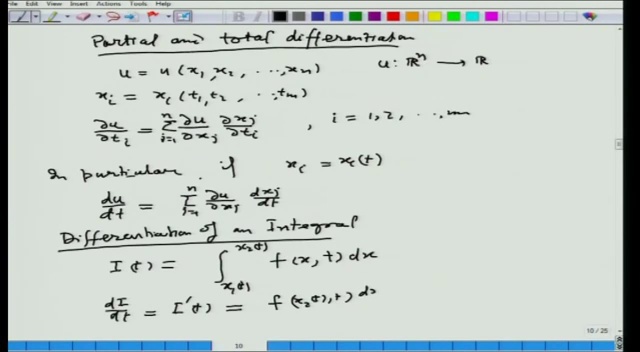 File View Insert Actions Tools Help
Partial and total differentiation
u = u(x₁, x₂, ..., xₙ) u: ℝⁿ → ℝ
xᵢ = xᵢ(t₁, t₂, ..., tₘ)
∂u/∂tᵢ = Σⁿⱼ₌₁ ∂u/∂xⱼ ∂xⱼ/∂tᵢ , i = 1, 2, ..., m
In particular, if xᵢ = xᵢ(t)
du/dt = Σⁿⱼ₌₁ ∂u/∂xⱼ dxⱼ/dt
Differentiation of an Integral
I(t) = ∫_{x₁(t)}^{x₂(t)} f(x, t) dx
dI/dt = I'(t) = f(x₂(t), t) dx
10 / 25
10